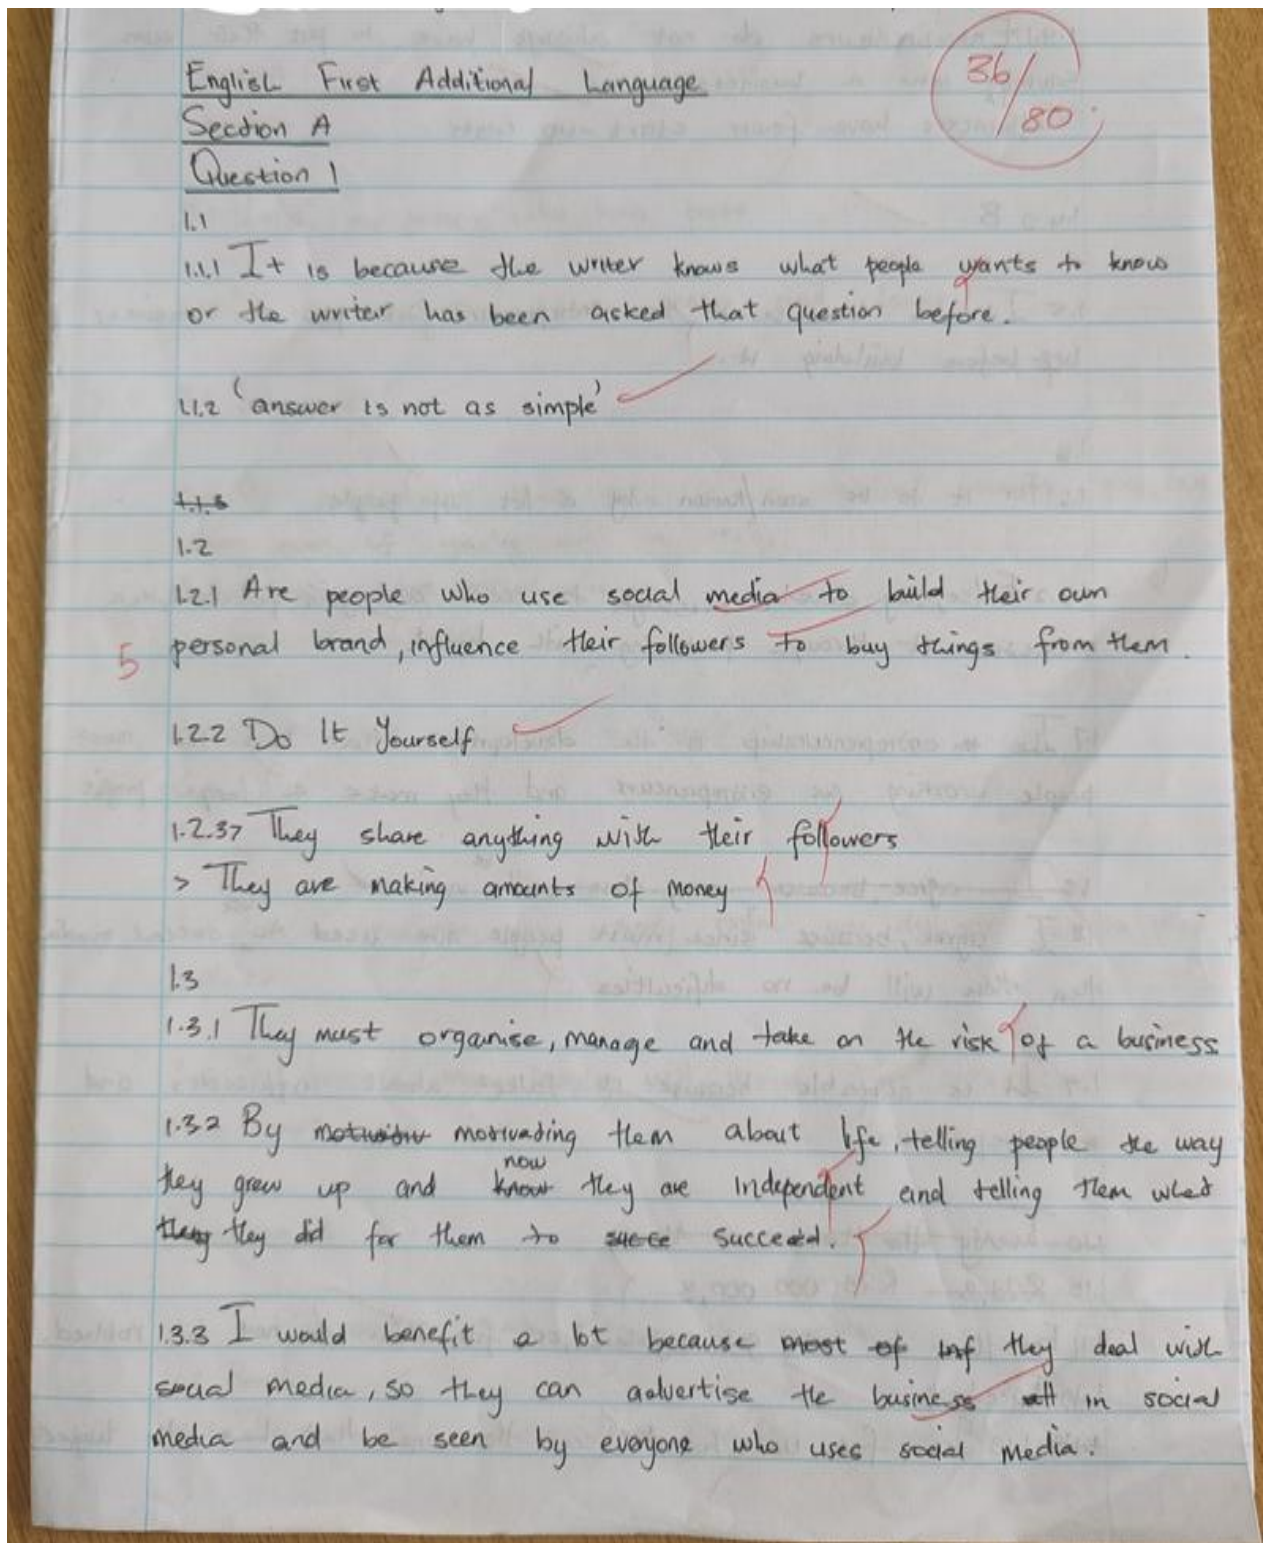 English First Additional Language
36/80
Section A
Question 1
1.1
1.1.1 It is because the writer knows what people wants to know
or the writer has been asked that question before.
1.1.2 'answer is not as simple'
1.1.3
1.2
1.2.1 Are people who use social media to build their own
5 personal brand, influence their followers to buy things from them.
1.2.2 Do It Yourself
1.2.3> They share anything with their followers
> They are making amounts of money
1.3
1.3.1 They must organise, manage and take on the risk of a business
1.3.2 By motivading them about life, telling people the way
now
they grew up and know they are independent and telling them what
they they did for them to succe succeed.
1.3.3 I would benefit a lot because most of inf they deal with
social media, so they can advertise the business in social
media and be seen by everyone who uses social media.